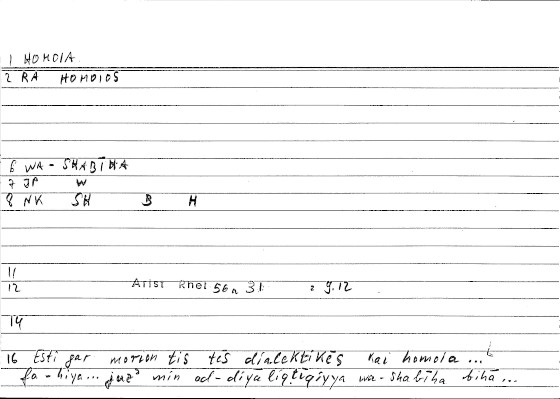 1 HOMOIA
2 RA HOMOIOS
6 WA-SHABĪHA
7 JP W
8 NK SH B H
11
12 Arist Rhet 56a 31 : 9.12
14
16 Esti gar morion tis tēs dialektikēs kai homoia ...
fa-hiya... juzʾ min ad-diyāliqṭīqiyya wa-shabīha bihā ...